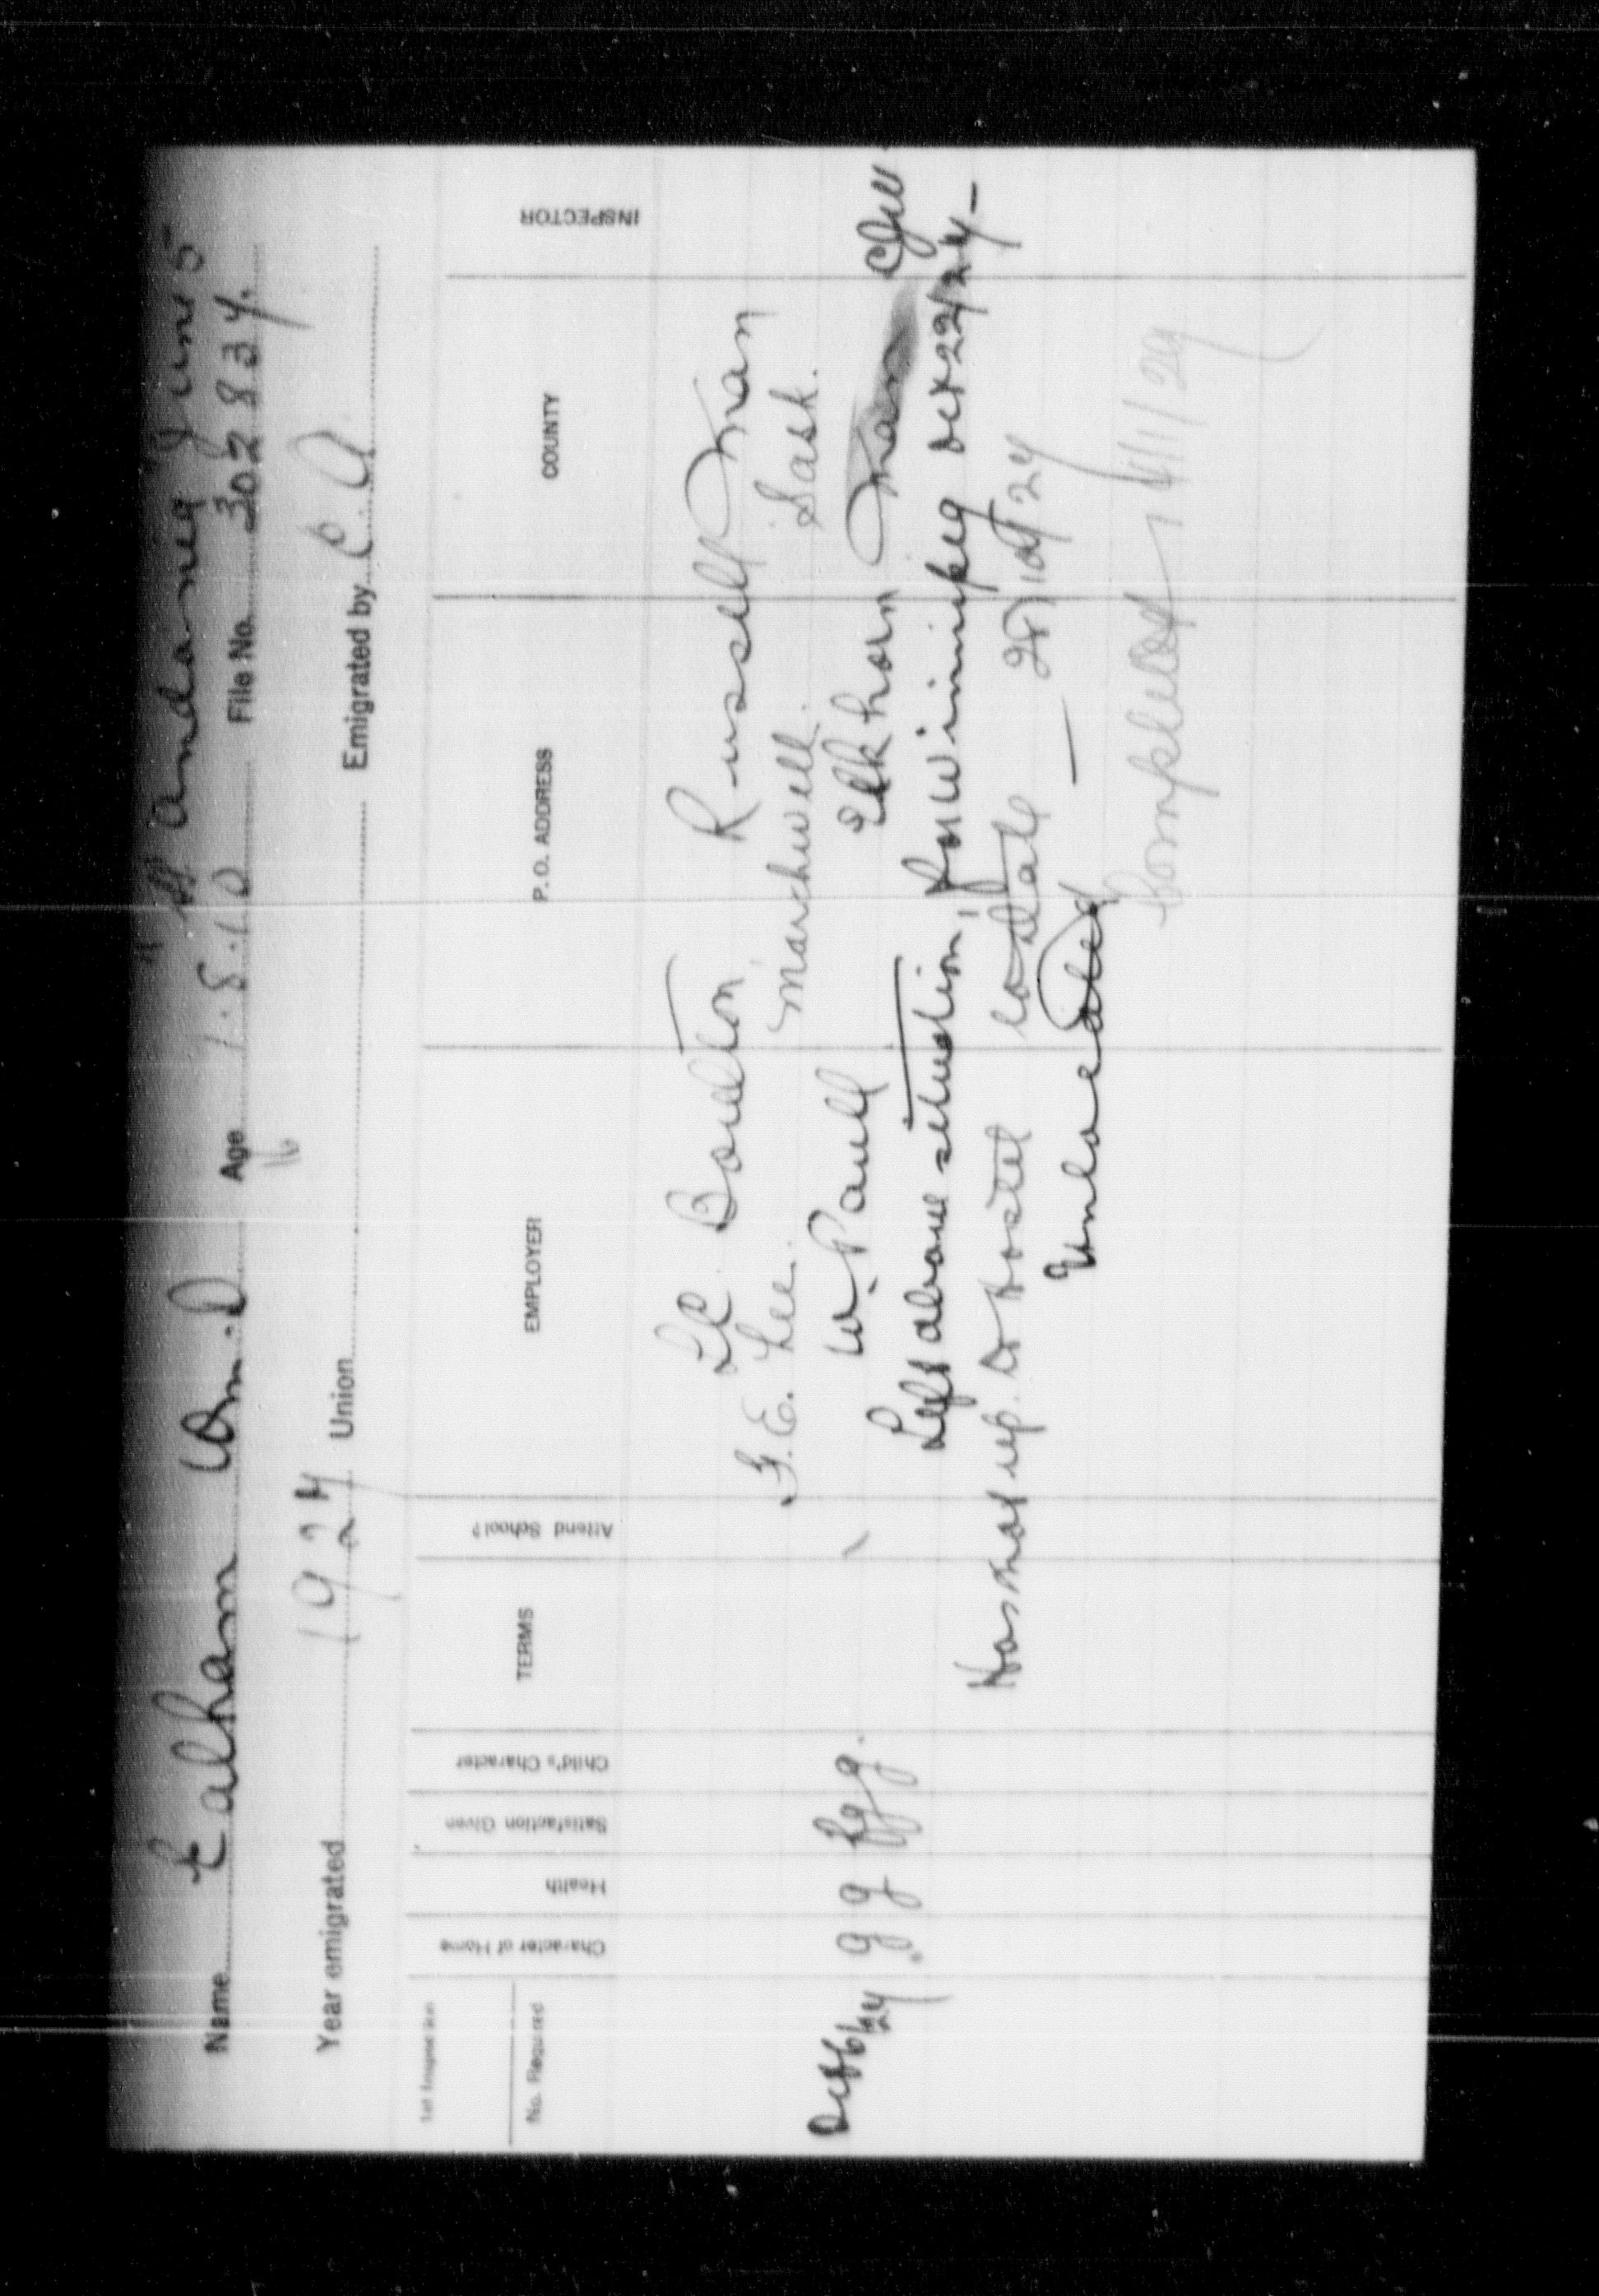 "Andania" June 5
Name Calham Wm. D Age 1.8.10 File No. 302834.
16
Year emigrated 1924 Union Emigrated by C. A
1st Inspection
No. Required Character of Home Health Satisfaction Given Child's Character TERMS Attend School? EMPLOYER P.O. ADDRESS COUNTY INSPECTOR
Boulton Russell Man
F.E. Lee. Marchwell. Sask.
Oct 6/24 g g fg g. W. Paull Elkhorn Man
Left above situation, for Winnipeg Oct 22/24 –
Has not rep. at Hostel to date — 28/10/24
Unlocated
Completed 1/1/29